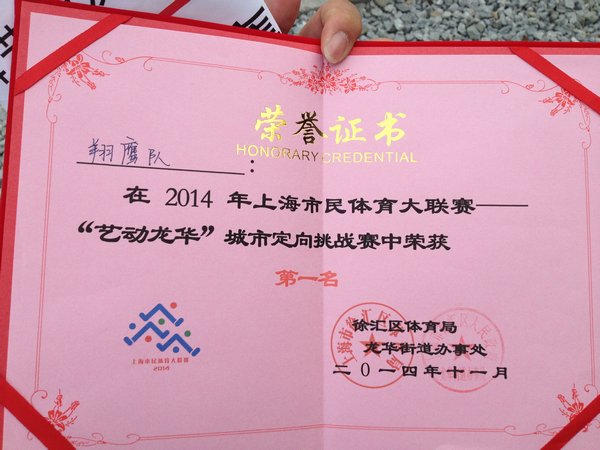 荣誉证书
HONORARY CREDENTIAL
翔鹰队：
在 2014 年上海市民体育大联赛——
“艺动龙华”城市定向挑战赛中荣获
第一名
上海市民体育大联赛
2014
徐汇区体育局
龙华街道办事处
二〇一四年十一月